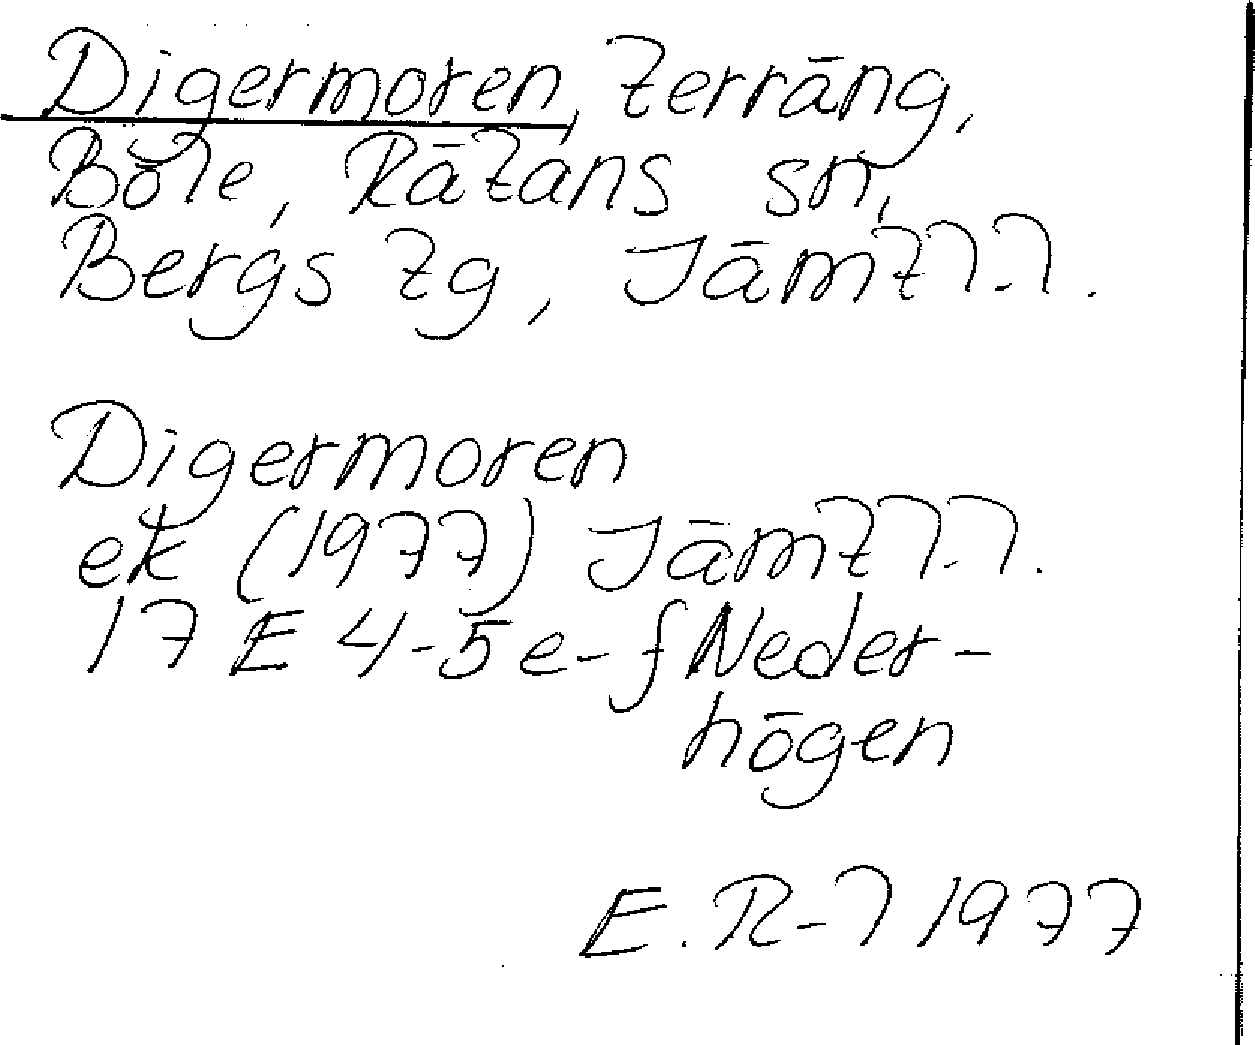 Digermoren, terräng,
Böle, Rätans sn,
Bergs tg, Jämtl.l.
Digermoren
ek (1977) Jämtl.l.
17 E 4-5 e-f Neder-
högen
E. R-l 1977